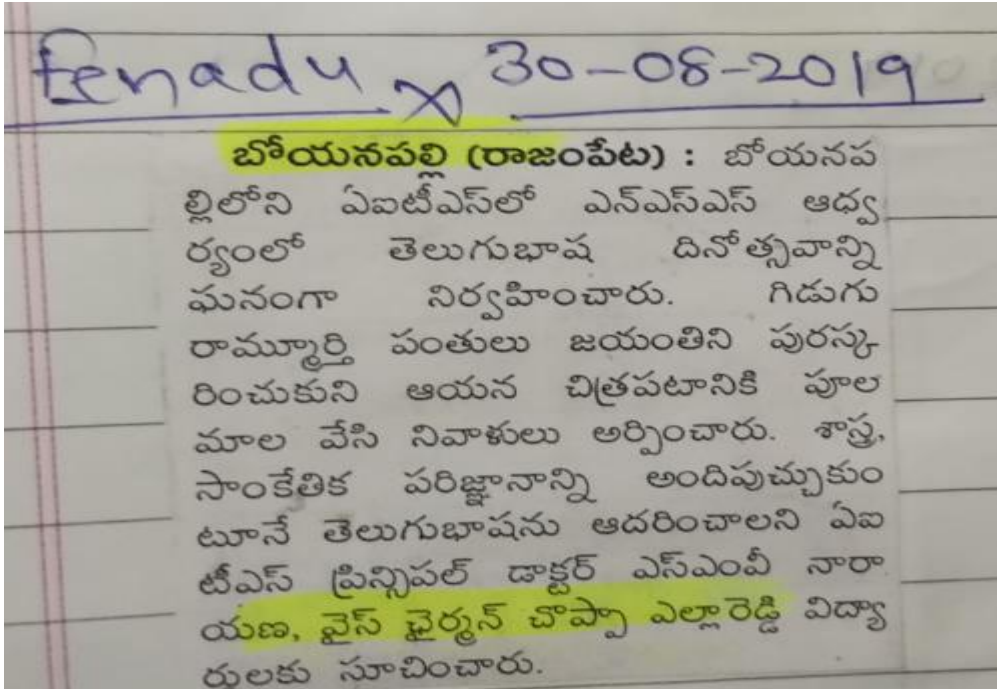 Eenadu x 30-08-2019
బోయనపల్లి (రాజంపేట) : బోయనప
ల్లిలోని ఏఐటీఎస్‌లో ఎన్ఎస్ఎస్ ఆధ్వ
ర్యంలో తెలుగుభాష దినోత్సవాన్ని
ఘనంగా నిర్వహించారు. గిడుగు
రామ్మూర్తి పంతులు జయంతిని పురస్క
రించుకుని ఆయన చిత్రపటానికి పూల
మాల వేసి నివాళులు అర్పించారు. శాస్త్ర,
సాంకేతిక పరిజ్ఞానాన్ని అందిపుచ్చుకుం
టూనే తెలుగుభాషను ఆదరించాలని ఏఐ
టీఎస్ ప్రిన్సిపల్ డాక్టర్ ఎస్ఎంవీ నారా
యణ, వైస్ ఛైర్మన్ చొప్పా ఎల్లారెడ్డి విద్యా
ర్థులకు సూచించారు.